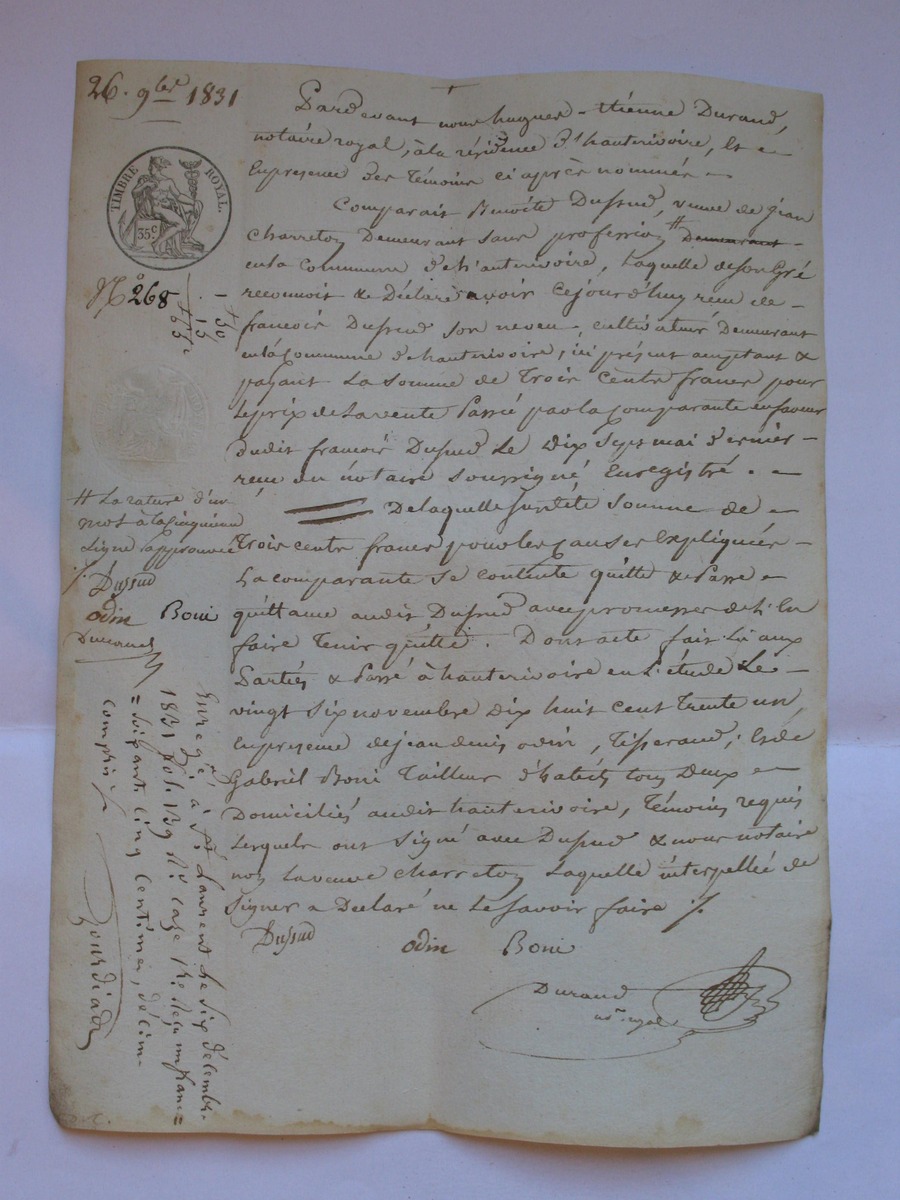 26. 9bre 1831
TIMBRE ROYAL.
35c
No 268
1 - 50
15
1 65
Pardevant nous hugues - étienne Durand,
notaire royal, à la résidence d'hauterivoire, Et
En presence des Témoins ci après nommés
Comparait Benoîte Dussud, veuve de Jean
Charretoy Demeurant sans profession # Demeurant
en la Commune d'hauterivoire, Laquelle de son Gré
reconnoit & Déclare avoir Cejourd'huy reçu de
françois Dussud son neveu, cultivateur Demeurant
en la Commune d'hauterivoire, ici présent acceptant &
payant La somme de Trois Cents francs pour
Le prix de La vente Passée par la Comparante en faveur
dudit françois Dussud Le dix Sept mai dernier
reçue du notaire soussigné, Enregistré.
De laquelle susdite somme de
Trois cents francs pour les Causes Expliquées
La comparante se contente quitte & Passe
quittance audit Dussud avec promesse de L'en
faire Tenir quitte. Dont acte fait Lu aux
Parties & Passé à hauterivoire en L'étude Le
vingt Six novembre Dix huit Cent Trente un,
En presence de jean denis odin, Tisserand, Et de
Gabriel Boni Tailleur d'habits tous Deux
Domiciliés audit hauterivoire, Témoins requis
Lesquels ont Signé avec Dussud & nous notaire
non La veuve Charretoy Laquelle interpellée de
Signer a Déclaré ne Le Savoir faire ./.
Dussud odin Boni
Durand
no.re royal
# La rature d'un
mot à la Cinquième
Ligne approuvée
./.
Dussud
odin Boni
Durand
Enregé à St Laurent Le Six décembre
1831 fol. 139 Ro. case 1re Reçu un franc
soixante cinq centimes, décime
compris ./.